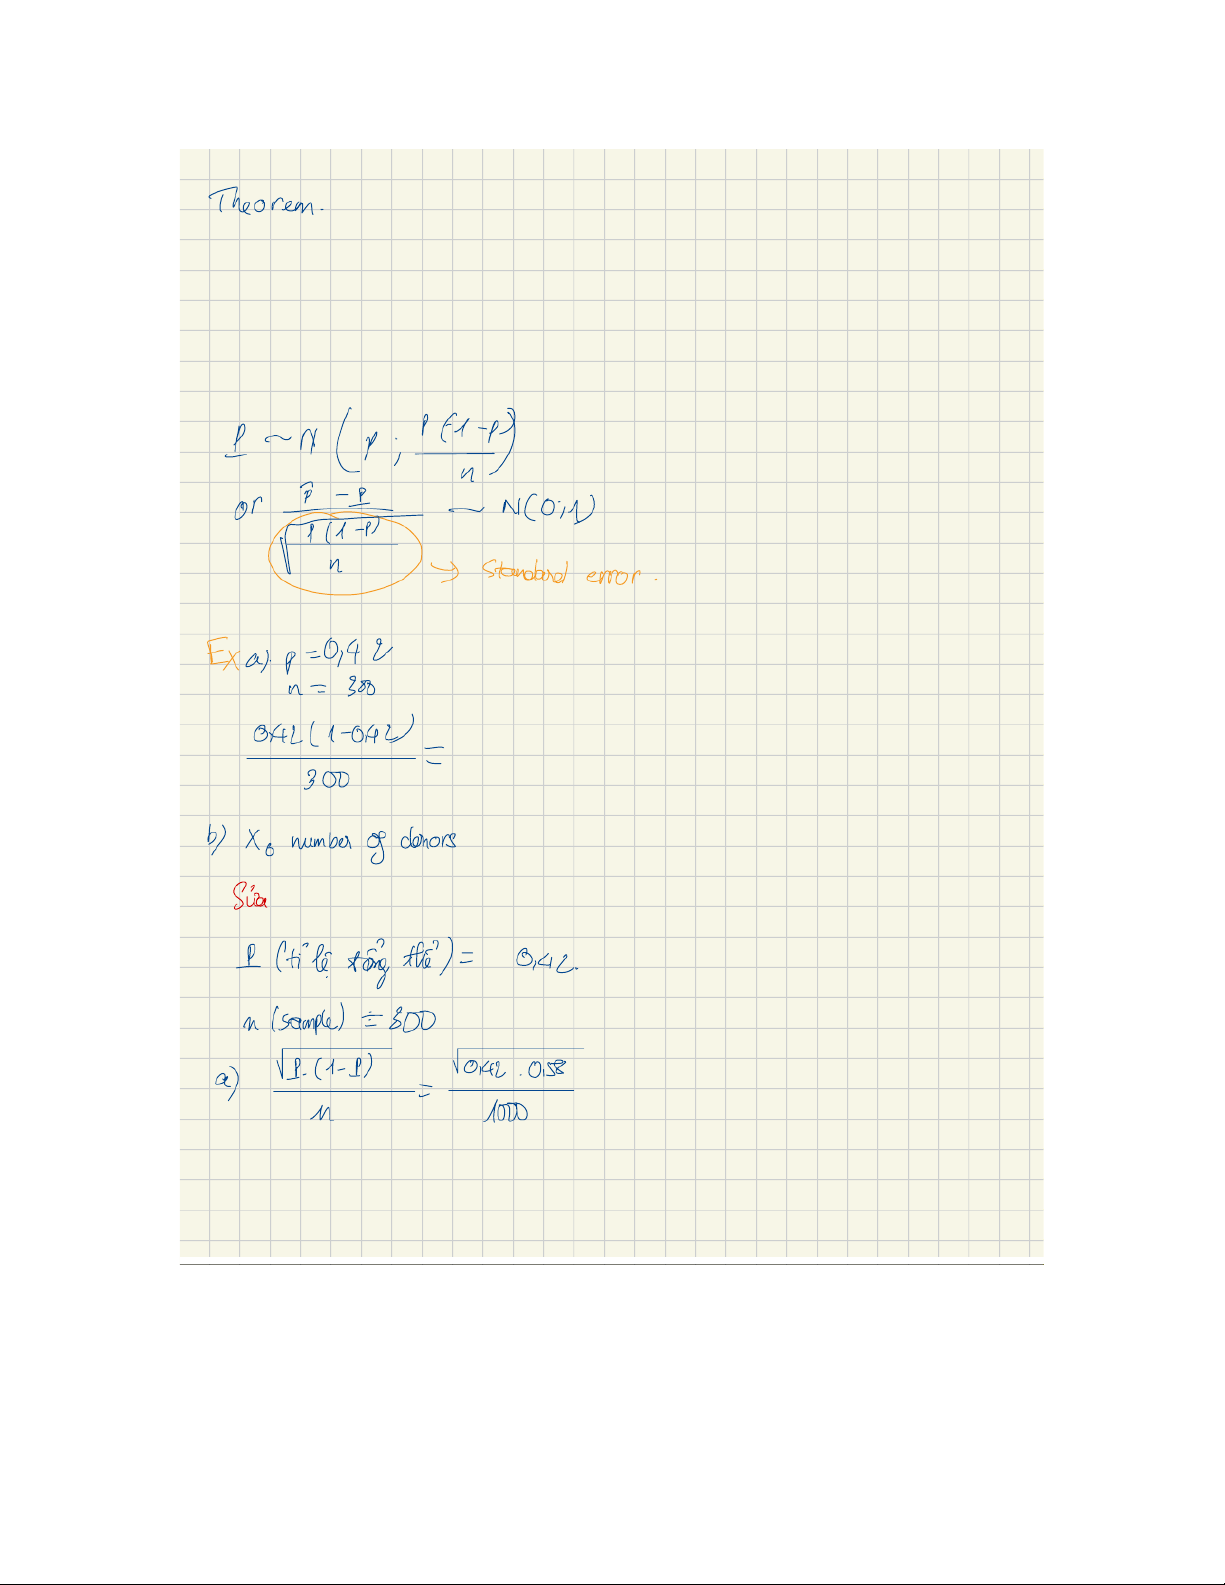 Theorem.
P ~ N ( p ; p (1-p) / n )
or p̂ - p / √( p (1-p) / n ) ~ N(0;1)
→ Standard error.
Ex a). p = 0,42
n = 300
0,42 (1-0,42) / 300 =
b) X: number of donors
Sửa
P (tỉ lệ tổng thể) = 0,42.
n (sample) = 300
a) √P. (1-P) / n = √0,42 . 0,58 / 1000